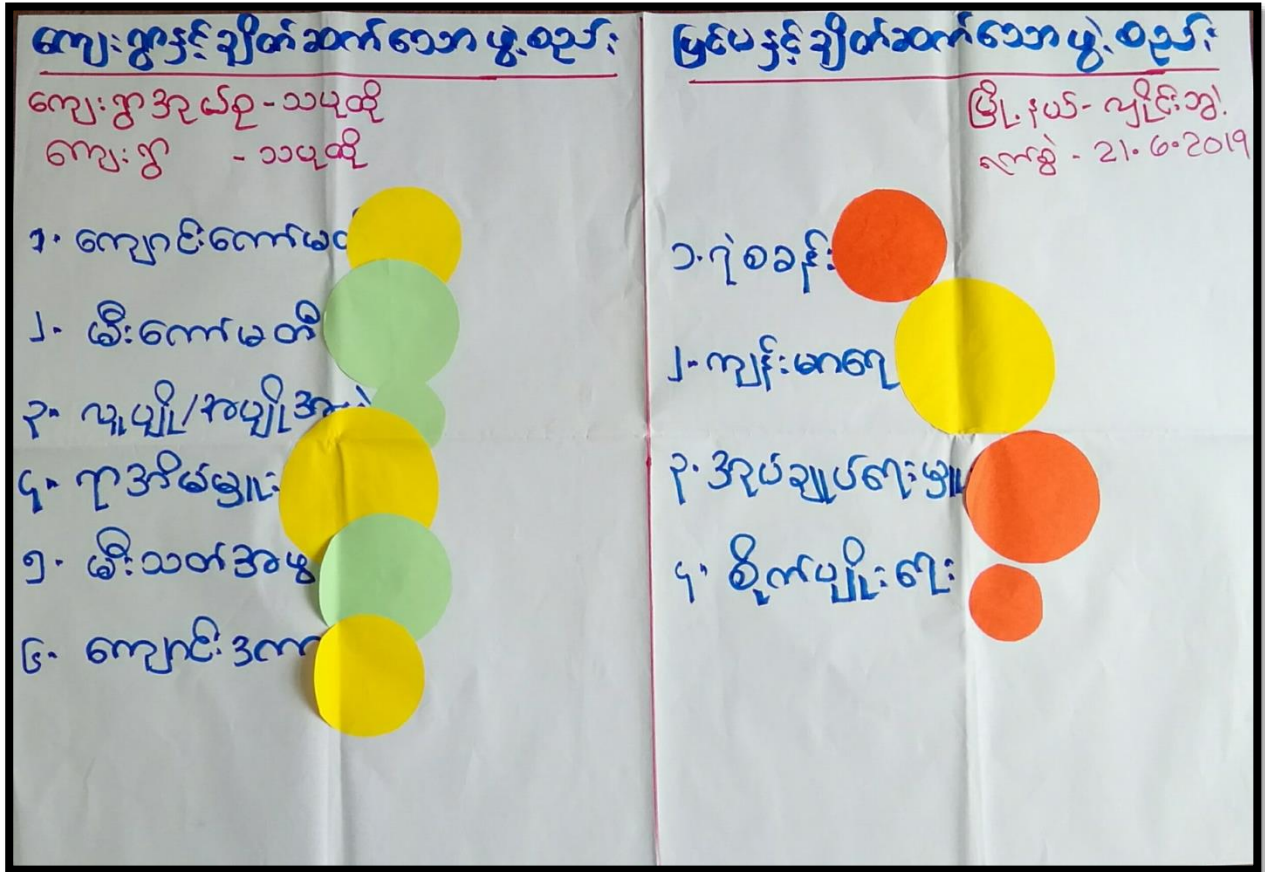 ကျေးရွာနှင့်ချိတ်ဆက်သောဖွဲ့စည်း
ကျေးရွာအုပ်စု - သပုထို
ကျေးရွာ - သပုထို
၁. ကျောင်းကော်မတ
၂. မီးကော်မတီ
၃. လူပျို/အပျို
၄. ရွာအိမ်မှူး
၅. မီးသတ်အဖွ
၆. ကျောင်းဒကာ
ပြင်ပနှင့်ချိတ်ဆက်သောဖွဲ့စည်း
မြို့နယ် - လှိုင်းဘွဲ့
ရက်စွဲ - 21.6.2019
၁. ရဲစခန်း
၂. ကျန်းမာရေ
၃. အုပ်ချုပ်ရေးမှူ
၄. စိုက်ပျိုးရေး